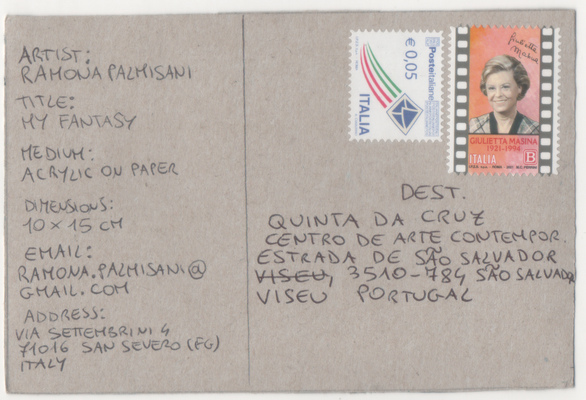 ARTIST:
RAMONA PALMISANI
TITLE:
MY FANTASY
MEDIUM:
ACRYLIC ON PAPER
DIMENSIONS:
10 x 15 CM
EMAIL:
RAMONA.PALMISANI@
GMAIL.COM
ADDRESS:
VIA SETTEMBRINI 4
71016 SAN SEVERO (FG)
ITALY
€ 0,05
Posteitaliane
ITALIA
Giulietta
Masina
GIULIETTA MASINA
1921-1994
ITALIA B
DEST.
QUINTA DA CRUZ
CENTRO DE ARTE CONTEMPOR.
ESTRADA DE SÃO SALVADOR
VISEU, 3510-784 SÃO SALVADOR
VISEU PORTUGAL